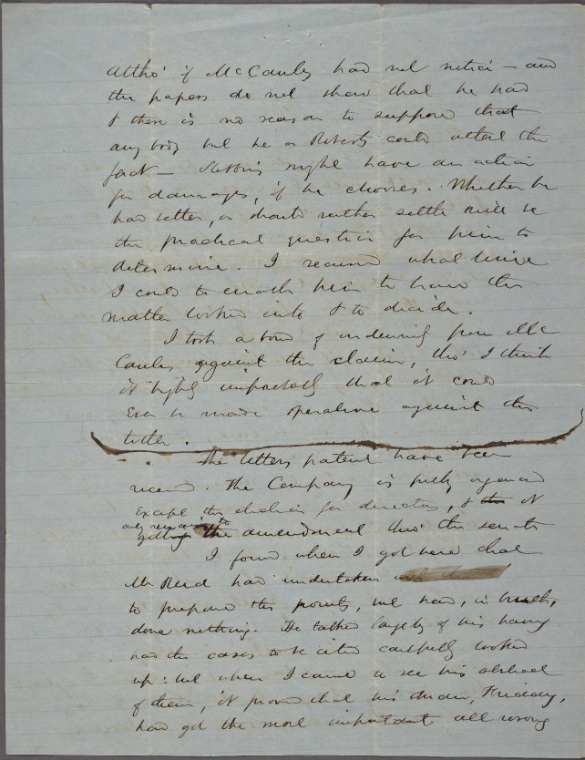 altho' if McCauley had not notice — and
the papers do not show that he had
& there is no reason to suppose that
any body but he or Roberts could attest the
fact — Stebbins might have an action
for damages, if he chooses. Whether he
had better, or should rather settle will be
the practical question for him to
determine. I secured what time
I could to enable him to have the
matter looked into & to decide.
I took a bond of indemnity from Mc
Cauley against the claim, tho' I think
it highly improbable that it could
ever be made operative against the
title.
The letters patent have been
received. The Company is fully organized
except the election for directors, & it
only remains to
the amendment thro' the senate
I found when I got here that
Mr Reed had undertaken
to prepare the points, but had, in truth,
done nothing. He talked largely of his having
had the cases to be cited carefully looked
up: but when I came to see his abstract
of them, it proved that his
had got the most important all wrong